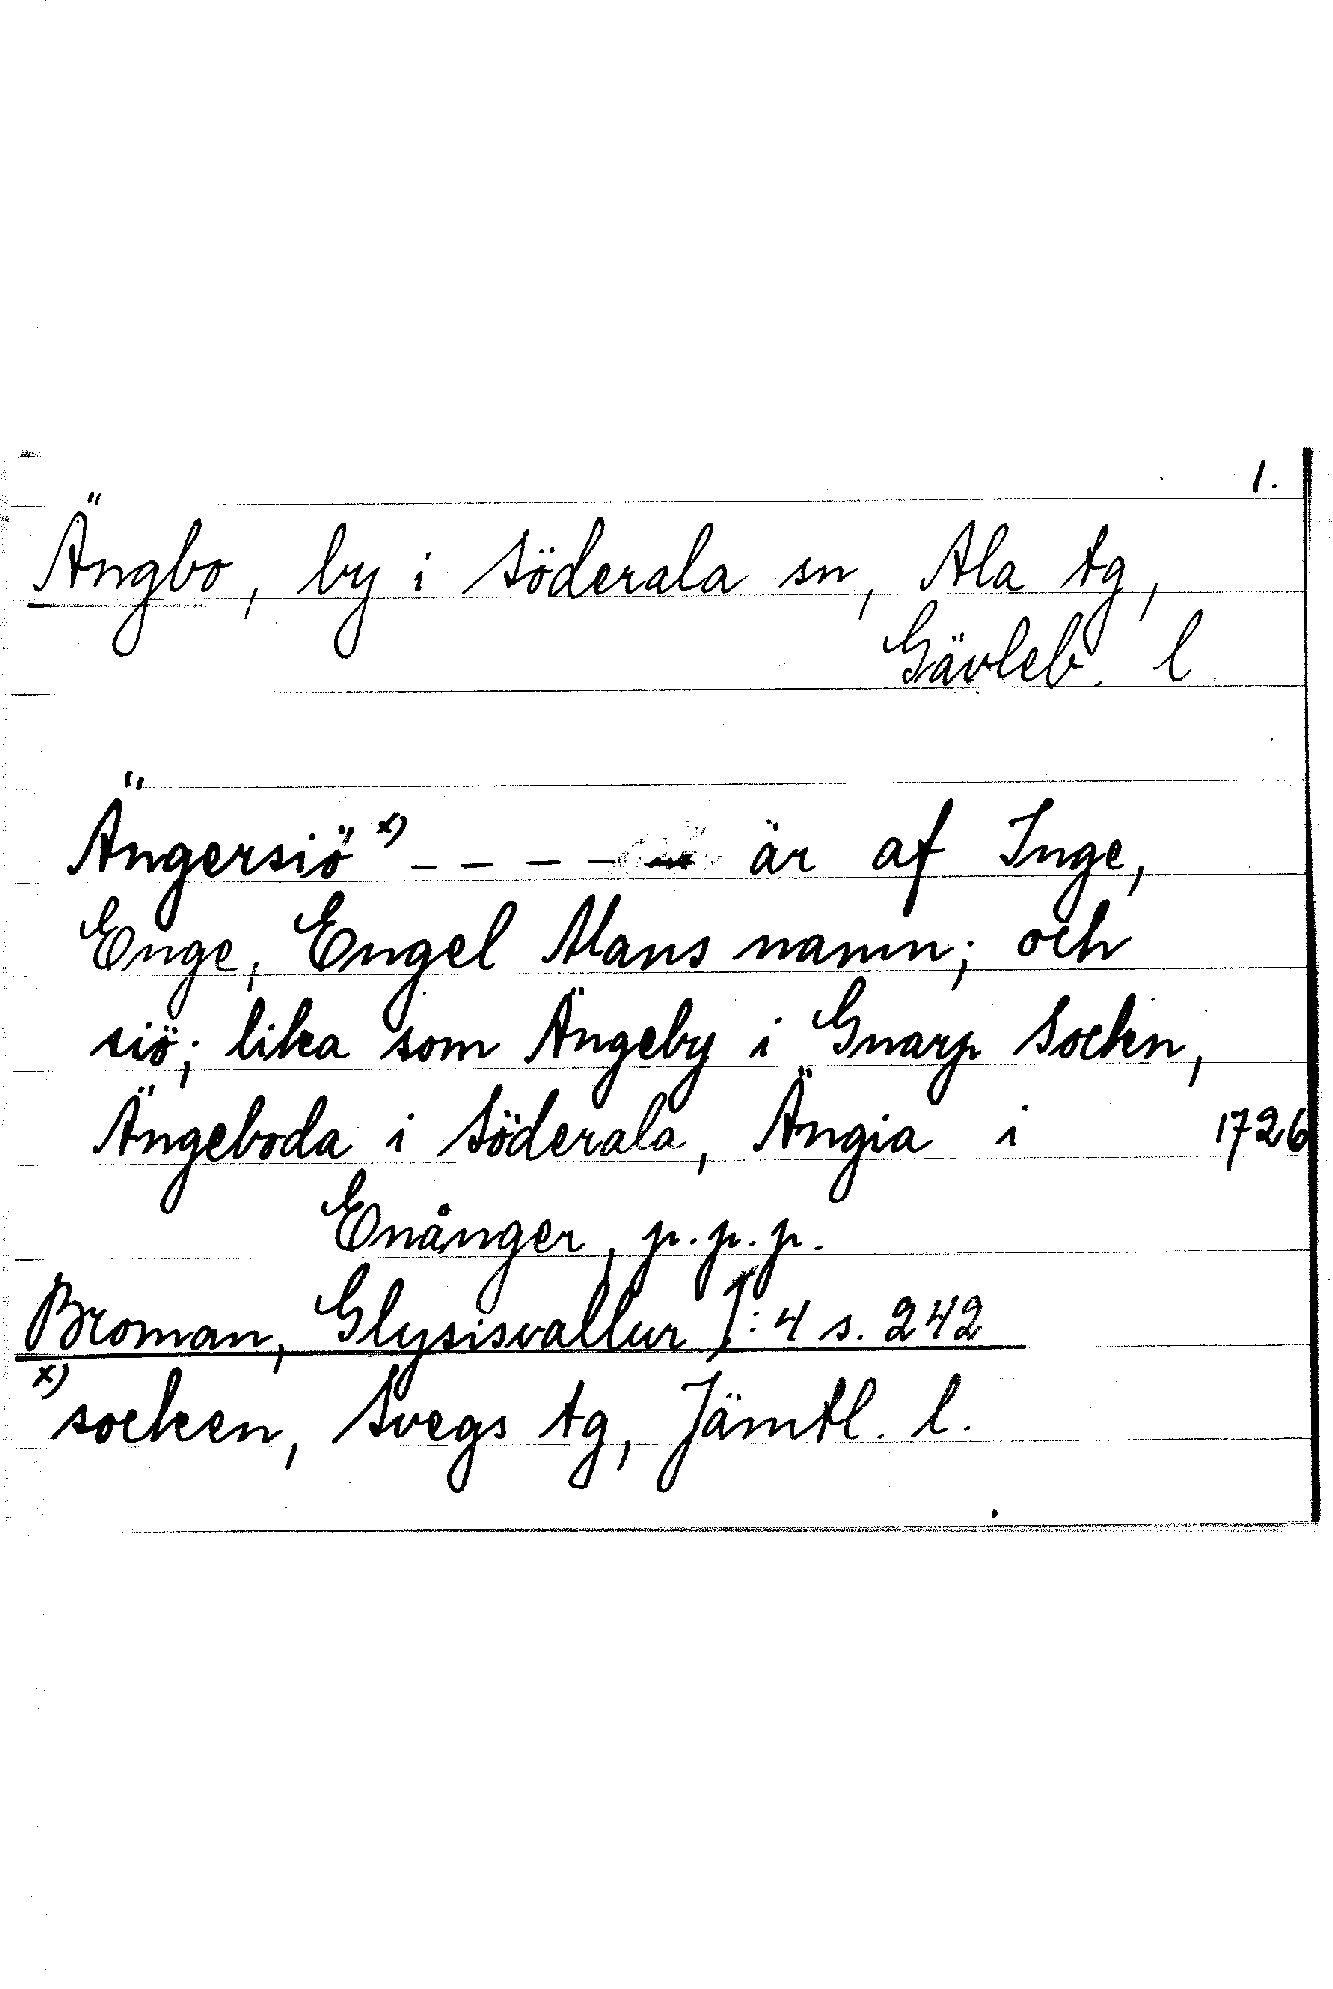 1.
Ängbo, by i Söderala sn, Ala tg,
Gävleb. l
Ängersiö x) - - - - - är af Inge,
Enge, Engel Mans namn; och
siö; lika som Ängeby i Gnarp Sockn,
Ängeboda i Söderala, Ängia i 1726
Enånger, p.p.p.
Broman, Glysisvallur I:4 s. 242
x) socken, Svegs tg, Jämtl. l.